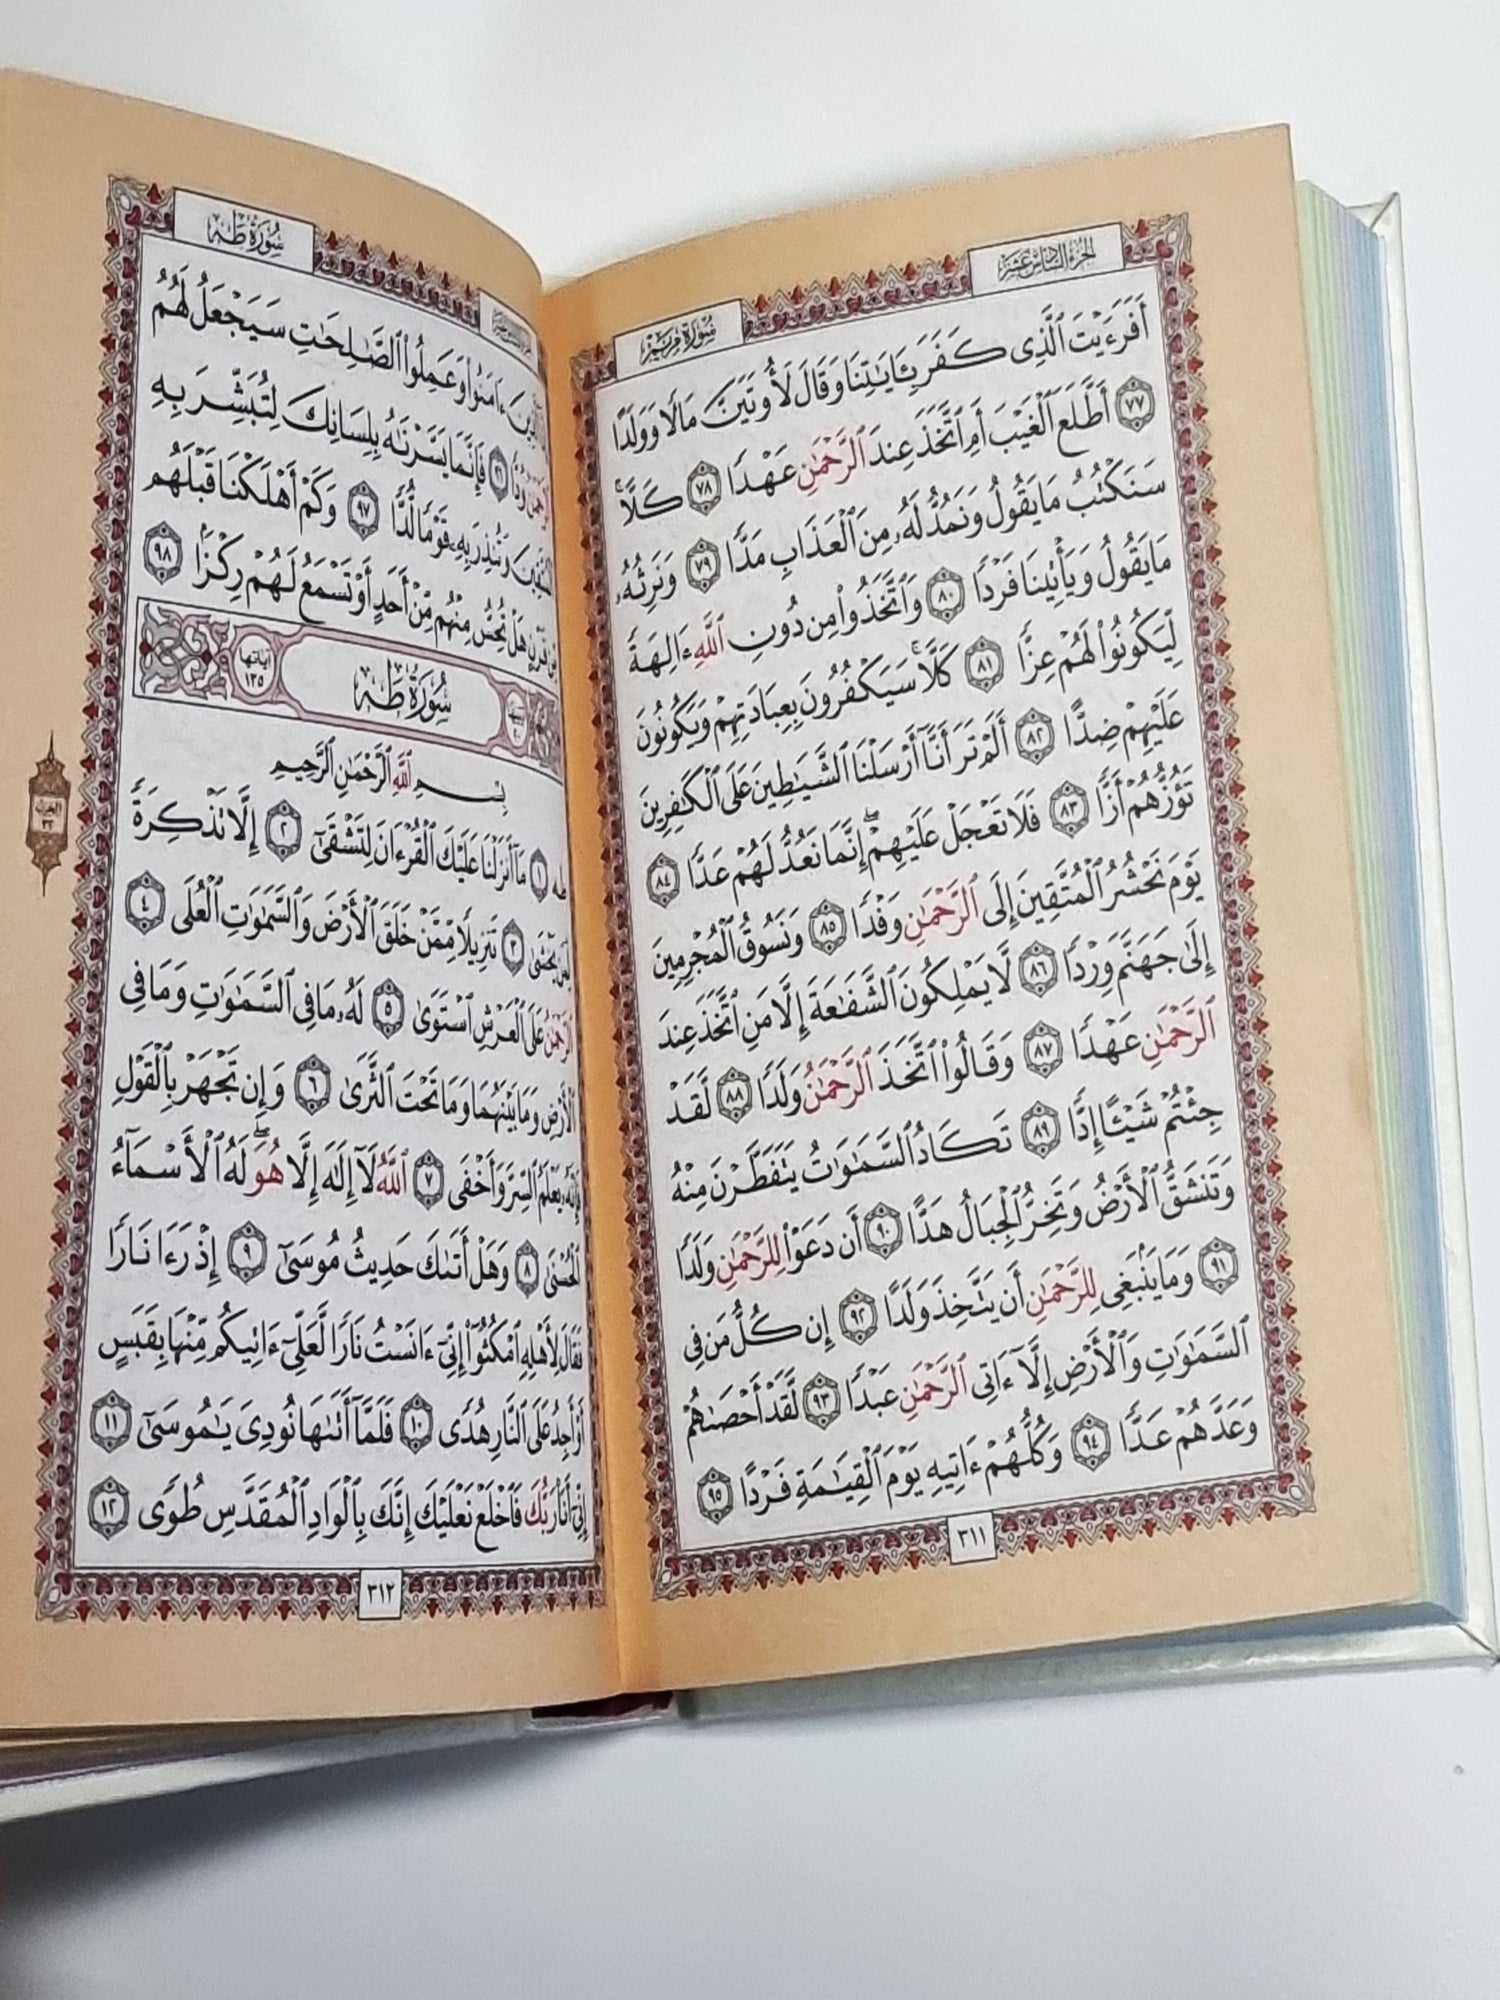 الجزء السادس عشر
سورة مريم
أَفَرَءَيْتَ ٱلَّذِى كَفَرَ بِـَٔايَـٰتِنَا وَقَالَ لَأُوتَيَنَّ مَالًا وَوَلَدًا
٧٧ أَطَّلَعَ ٱلْغَيْبَ أَمِ ٱتَّخَذَ عِندَ ٱلرَّحْمَـٰنِ عَهْدًا ٧٨ كَلَّا ۚ
سَنَكْتُبُ مَا يَقُولُ وَنَمُدُّ لَهُۥ مِنَ ٱلْعَذَابِ مَدًّا ٧٩ وَنَرِثُهُۥ
مَا يَقُولُ وَيَأْتِينَا فَرْدًا ٨٠ وَٱتَّخَذُوا۟ مِن دُونِ ٱللَّهِ ءَالِهَةً
لِّيَكُونُوا۟ لَهُمْ عِزًّا ٨١ كَلَّا ۚ سَيَكْفُرُونَ بِعِبَادَتِهِمْ وَيَكُونُونَ
عَلَيْهِمْ ضِدًّا ٨٢ أَلَمْ تَرَ أَنَّآ أَرْسَلْنَا ٱلشَّيَـٰطِينَ عَلَى ٱلْكَـٰفِرِينَ
تَؤُزُّهُمْ أَزًّا ٨٣ فَلَا تَعْجَلْ عَلَيْهِمْ ۖ إِنَّمَا نَعُدُّ لَهُمْ عَدًّا ٨٤
يَوْمَ نَحْشُرُ ٱلْمُتَّقِينَ إِلَى ٱلرَّحْمَـٰنِ وَفْدًا ٨٥ وَنَسُوقُ ٱلْمُجْرِمِينَ
إِلَىٰ جَهَنَّمَ وِرْدًا ٨٦ لَّا يَمْلِكُونَ ٱلشَّفَـٰعَةَ إِلَّا مَنِ ٱتَّخَذَ عِندَ
ٱلرَّحْمَـٰنِ عَهْدًا ٨٧ وَقَالُوا۟ ٱتَّخَذَ ٱلرَّحْمَـٰنُ وَلَدًا ٨٨ لَّقَدْ
جِئْتُمْ شَيْـًٔا إِدًّا ٨٩ تَكَادُ ٱلسَّمَـٰوَٰتُ يَتَفَطَّرْنَ مِنْهُ
وَتَنشَقُّ ٱلْأَرْضُ وَتَخِرُّ ٱلْجِبَالُ هَدًّا ٩٠ أَن دَعَوْا۟ لِلرَّحْمَـٰنِ وَلَدًا
٩١ وَمَا يَنۢبَغِى لِلرَّحْمَـٰنِ أَن يَتَّخِذَ وَلَدًا ٩٢ إِن كُلُّ مَن فِى
ٱلسَّمَـٰوَٰتِ وَٱلْأَرْضِ إِلَّآ ءَاتِى ٱلرَّحْمَـٰنِ عَبْدًا ٩٣ لَّقَدْ أَحْصَىٰهُمْ
وَعَدَّهُمْ عَدًّا ٩٤ وَكُلُّهُمْ ءَاتِيهِ يَوْمَ ٱلْقِيَـٰمَةِ فَرْدًا ٩٥
٣١١
سورة طه
ءَامَنُوا۟ وَعَمِلُوا۟ ٱلصَّـٰلِحَـٰتِ سَيَجْعَلُ لَهُمُ
وُدًّا ٩٦ فَإِنَّمَا يَسَّرْنَـٰهُ بِلِسَانِكَ لِتُبَشِّرَ بِهِ
وَتُنذِرَ بِهِۦ قَوْمًا لُّدًّا ٩٧ وَكَمْ أَهْلَكْنَا قَبْلَهُم
مِّن قَرْنٍ هَلْ تُحِسُّ مِنْهُم مِّنْ أَحَدٍ أَوْ تَسْمَعُ لَهُمْ رِكْزًۢا ٩٨
سورة طه
آياتها ١٣٥
بِسْمِ ٱللَّهِ ٱلرَّحْمَـٰنِ ٱلرَّحِيمِ
طه ١ مَآ أَنزَلْنَا عَلَيْكَ ٱلْقُرْءَانَ لِتَشْقَىٰٓ ٢ إِلَّا تَذْكِرَةً
لِّمَن يَخْشَىٰ ٣ تَنزِيلًا مِّمَّنْ خَلَقَ ٱلْأَرْضَ وَٱلسَّمَـٰوَٰتِ ٱلْعُلَى ٤
ٱلرَّحْمَـٰنُ عَلَى ٱلْعَرْشِ ٱسْتَوَىٰ ٥ لَهُۥ مَا فِى ٱلسَّمَـٰوَٰتِ وَمَا فِى
ٱلْأَرْضِ وَمَا بَيْنَهُمَا وَمَا تَحْتَ ٱلثَّرَىٰ ٦ وَإِن تَجْهَرْ بِٱلْقَوْلِ
فَإِنَّهُۥ يَعْلَمُ ٱلسِّرَّ وَأَخْفَى ٧ ٱللَّهُ لَآ إِلَـٰهَ إِلَّا هُوَ ۖ لَهُ ٱلْأَسْمَآءُ
ٱلْحُسْنَىٰ ٨ وَهَلْ أَتَىٰكَ حَدِيثُ مُوسَىٰٓ ٩ إِذْ رَءَا نَارًا
فَقَالَ لِأَهْلِهِ ٱمْكُثُوٓا۟ إِنِّىٓ ءَانَسْتُ نَارًا لَّعَلِّىٓ ءَاتِيكُم مِّنْهَا بِقَبَسٍ
أَوْ أَجِدُ عَلَى ٱلنَّارِ هُدًى ١٠ فَلَمَّآ أَتَىٰهَا نُودِىَ يَـٰمُوسَىٰٓ ١١
إِنِّىٓ أَنَا۠ رَبُّكَ فَٱخْلَعْ نَعْلَيْكَ إِنَّكَ بِٱلْوَادِ ٱلْمُقَدَّسِ طُوًى ١٢
٣١٢
الحزب
٣٢